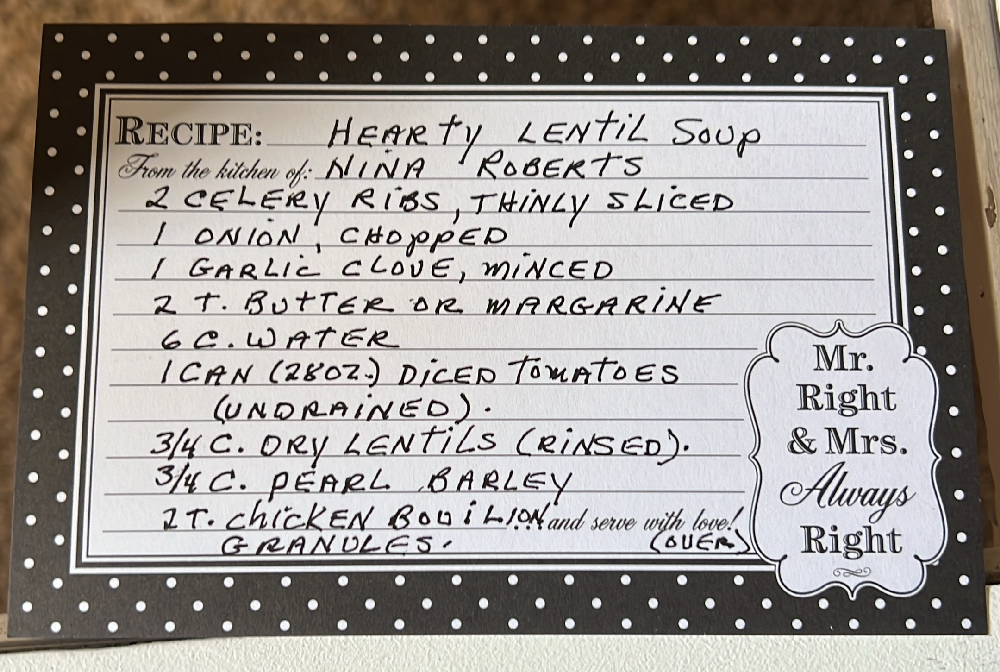 RECIPE: HEARTY LENTIL SOUP
From the kitchen of: NINA ROBERTS
2 CELERY RIBS, THINLY SLICED
1 ONION, CHOPPED
1 GARLIC CLOVE, MINCED
2 T. BUTTER OR MARGARINE
6 C. WATER
1 CAN (28 OZ.) DICED TOMATOES
(UNDRAINED).
3/4 C. DRY LENTILS (RINSED).
3/4 C. PEARL BARLEY
2 T. CHICKEN BOUILION and serve with love!
GRANULES. (OVER)
Mr.
Right
& Mrs.
Always
Right